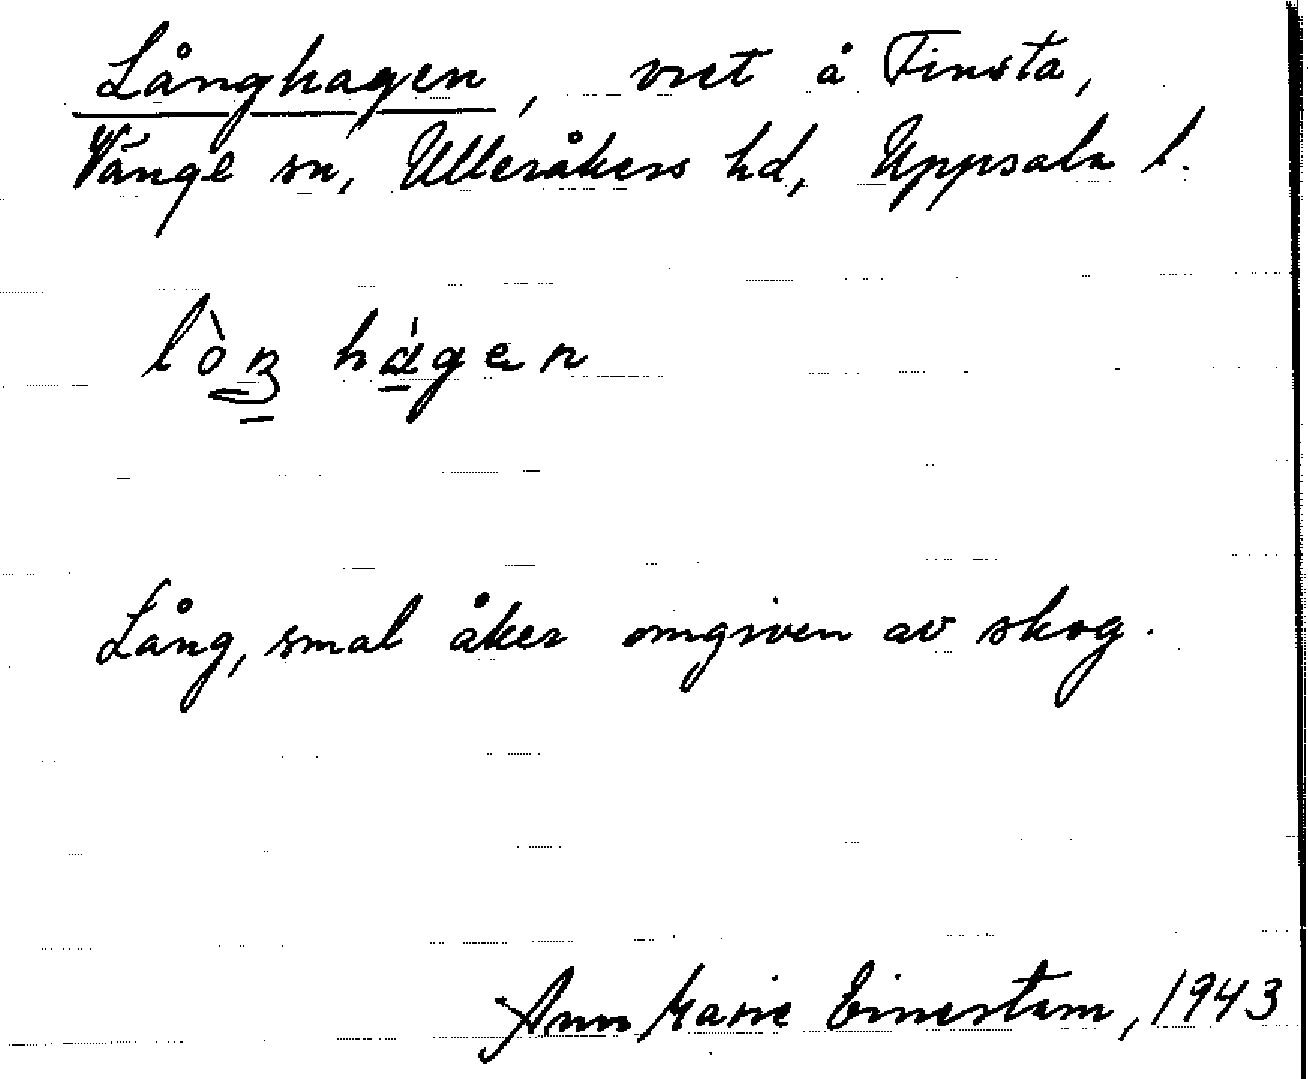 Långhagen, vret å Finsta,
Vänge sn, Ulleråkers hd, Uppsala l.
lòŋ hágen
Lång, smal åker omgiven av skog.
Ann Marie Einerstam, 1943